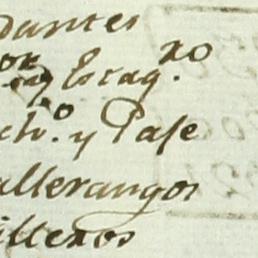 dantes
y Estag.ro
ch.o y Pase
allerangos
illeros